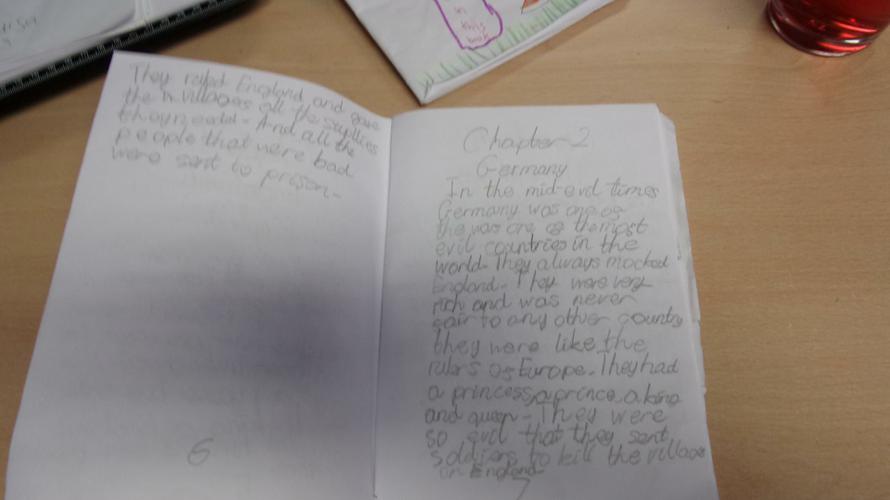 in
this
book
They ruled England and gave
the villages all the suplies
they needed. And all the
people that were bad
were sent to prison.
6
Chapter 2
Germany
In the mid-evil times
Germany was one of
the was one of the most
evil countries in the
world. They always mocked
England. They were very
rich and was never
fair to any other country
they were like the
rulers of Europe. They had
a princess, a prince, a king
and queen. They were
so evil that they sent
soldiers to kill the village
in England
7